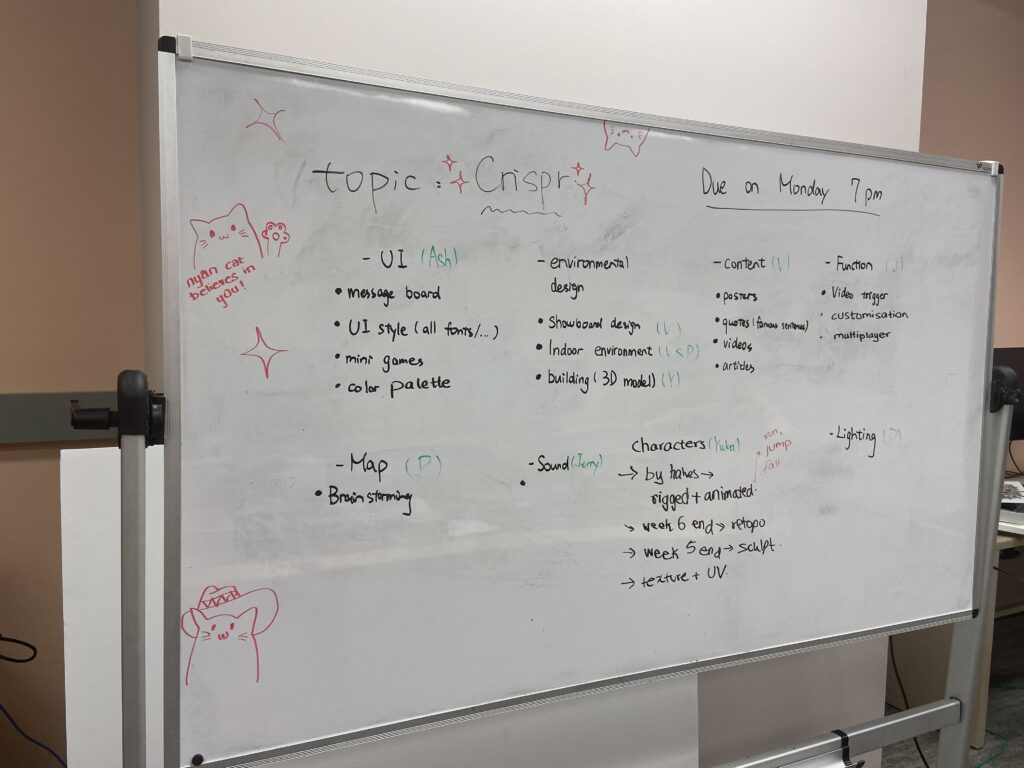 topic : Crispr
Due on Monday 7 pm
nyan cat
believes in
you!
- UI (Ash)
• message board
• UI style (all fonts/...)
• mini games
• color palette
- environmental
design
• Showboard design
• Indoor environment
• building (3D model) (Y)
- Content
• posters
• quotes (famous sentences)
• videos
• articles
- Function (J)
• Video trigger
• customisation
• multiplayer
- Map (P)
• Brain storming
- Sound (Jerry)
•
Characters
→ by →
rigged + animated.
→ week 6 end → retopo
→ week 5 end → sculpt.
→ texture + UV.
run,
jump
fall
- Lighting